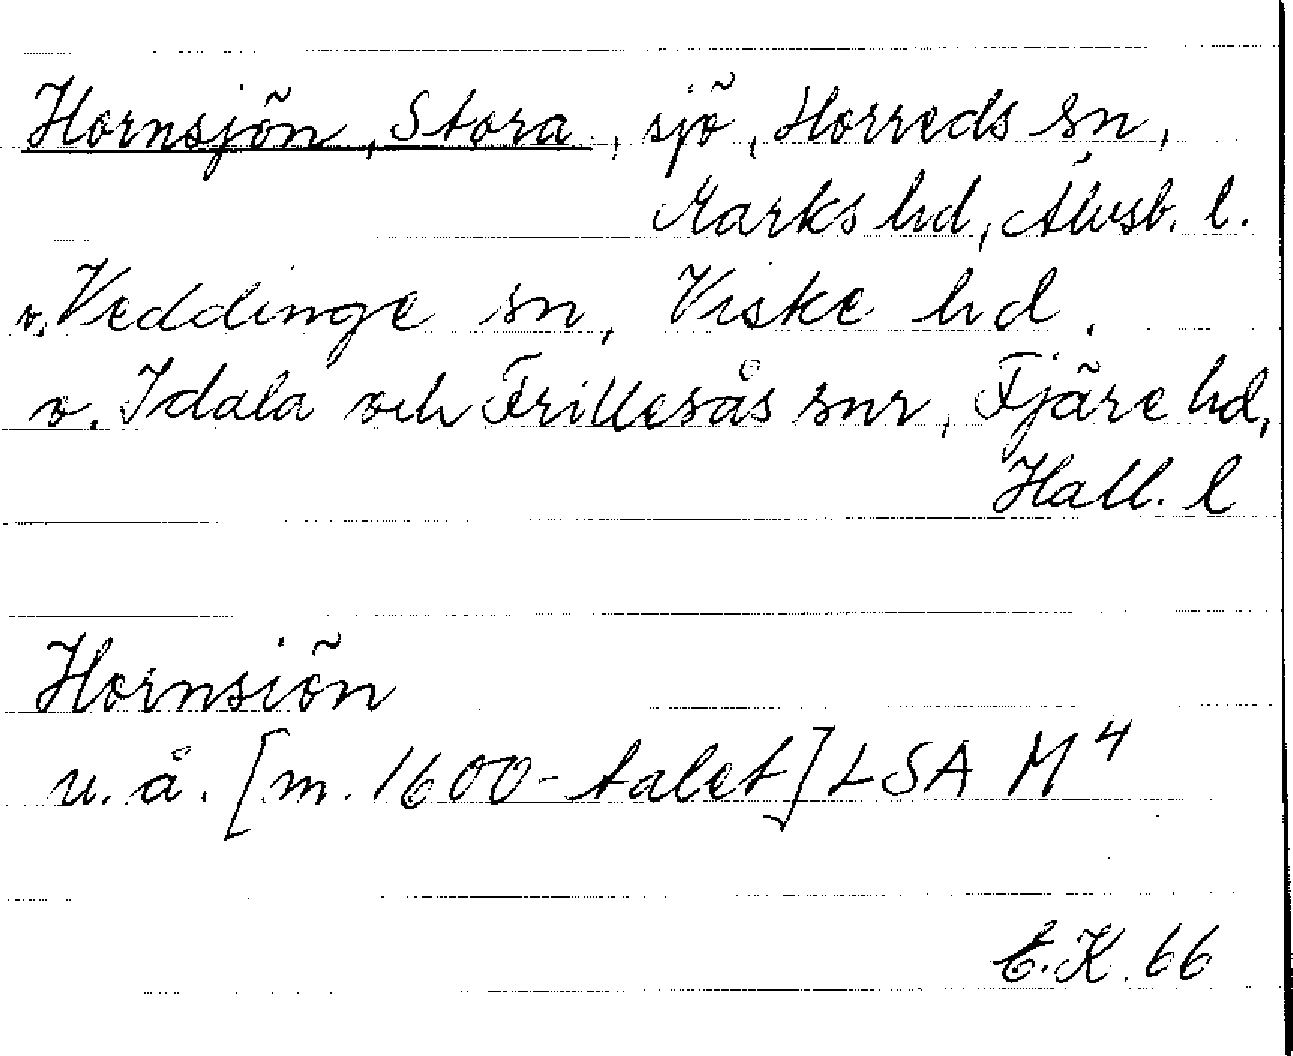 Hornsjön, Stora, sjö, Horreds sn,
Marks hd, Älvsb. l.
o. Veddinge sn, Viske hd,
o. Idala och Frillesås snr, Fjäre hd,
Hall. l
Hornsiön
u. å. [m. 1600-talet] LSA M4
E.K. 66